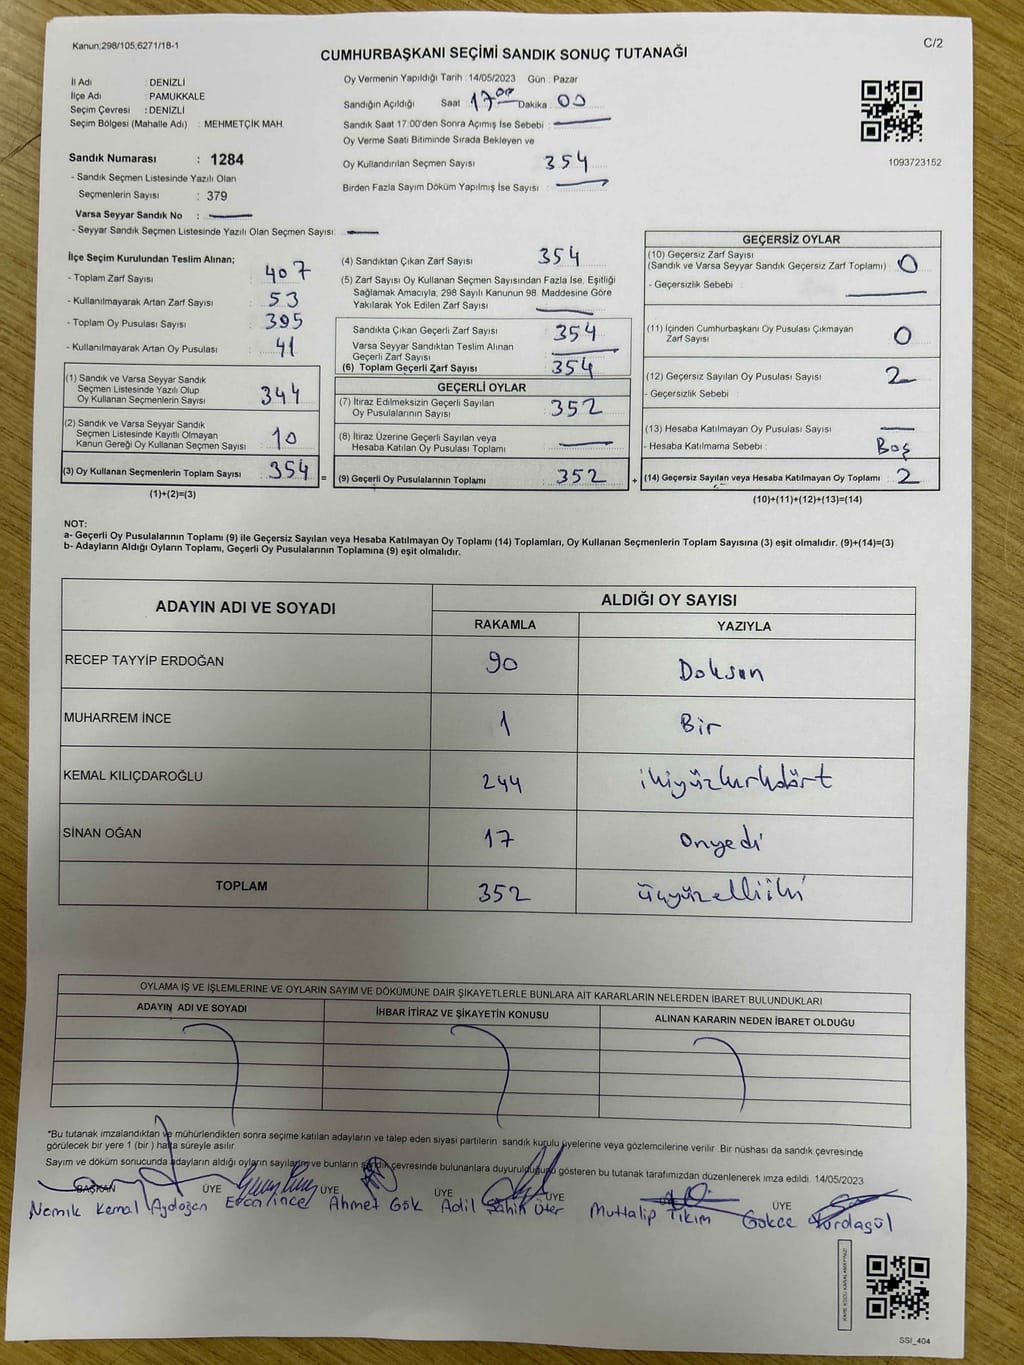 Kanun;298/105;6271/18-1
C/2
CUMHURBAŞKANI SEÇİMİ SANDIK SONUÇ TUTANAĞI
İl Adı : DENİZLİ
İlçe Adı : PAMUKKALE
Seçim Çevresi : DENİZLİ
Seçim Bölgesi (Mahalle Adı) : MEHMETÇİK MAH.
Sandık Numarası : 1284
- Sandık Seçmen Listesinde Yazılı Olan
Seçmenlerin Sayısı : 379
Varsa Seyyar Sandık No :
- Seyyar Sandık Seçmen Listesinde Yazılı Olan Seçmen Sayısı:
Oy Vermenin Yapıldığı Tarih : 14/05/2023 Gün : Pazar
Sandığın Açıldığı Saat 17:00 Dakika : 00
Sandık Saat 17:00'den Sonra Açımış İse Sebebi :
Oy Verme Saati Bitiminde Sırada Bekleyen ve
Oy Kullandırılan Seçmen Sayısı 354
Birden Fazla Sayım Döküm Yapılmış İse Sayısı :
1093723152
İlçe Seçim Kurulundan Teslim Alınan;
- Toplam Zarf Sayısı : 407
- Kullanılmayarak Artan Zarf Sayısı : 53
- Toplam Oy Pusulası Sayısı : 395
- Kullanılmayarak Artan Oy Pusulası : 41
(1) Sandık ve Varsa Seyyar Sandık
Seçmen Listesinde Yazılı Olup
Oy Kullanan Seçmenlerin Sayısı : 344
(2) Sandık ve Varsa Seyyar Sandık
Seçmen Listesinde Kayıtlı Olmayan
Kanun Gereği Oy Kullanan Seçmen Sayısı : 10
(3) Oy Kullanan Seçmenlerin Toplam Sayısı : 354
(1)+(2)=(3)
=
(4) Sandıktan Çıkan Zarf Sayısı : 354
(5) Zarf Sayısı Oy Kullanan Seçmen Sayısından Fazla İse, Eşitliği
Sağlamak Amacıyla, 298 Sayılı Kanunun 98. Maddesine Göre
Yakılarak Yok Edilen Zarf Sayısı :
Sandıkta Çıkan Geçerli Zarf Sayısı : 354
Varsa Seyyar Sandıktan Teslim Alınan
Geçerli Zarf Sayısı
(6) Toplam Geçerli Zarf Sayısı : 354
GEÇERLİ OYLAR
(7) İtiraz Edilmeksizin Geçerli Sayılan
Oy Pusulalarının Sayısı : 352
(8) İtiraz Üzerine Geçerli Sayılan veya
Hesaba Katılan Oy Pusulası Toplamı
(9) Geçerli Oy Pusulalarının Toplamı : 352
+
GEÇERSİZ OYLAR
(10) Geçersiz Zarf Sayısı
(Sandık ve Varsa Seyyar Sandık Geçersiz Zarf Toplamı) : 0
- Geçersizlik Sebebi :
(11) İçinden Cumhurbaşkanı Oy Pusulası Çıkmayan
Zarf Sayısı : 0
(12) Geçersiz Sayılan Oy Pusulası Sayısı : 2
- Geçersizlik Sebebi :
(13) Hesaba Katılmayan Oy Pusulası Sayısı :
- Hesaba Katılmama Sebebi : Boş
(14) Geçersiz Sayılan veya Hesaba Katılmayan Oy Toplamı : 2
(10)+(11)+(12)+(13)=(14)
NOT:
a- Geçerli Oy Pusulalarının Toplamı (9) ile Geçersiz Sayılan veya Hesaba Katılmayan Oy Toplamı (14) Toplamları, Oy Kullanan Seçmenlerin Toplam Sayısına (3) eşit olmalıdır. (9)+(14)=(3)
b- Adayların Aldığı Oyların Toplamı, Geçerli Oy Pusulalarının Toplamına (9) eşit olmalıdır.
ADAYIN ADI VE SOYADI ALDIĞI OY SAYISI
RAKAMLA YAZIYLA
RECEP TAYYİP ERDOĞAN 90 Doksan
MUHARREM İNCE 1 Bir
KEMAL KILIÇDAROĞLU 244 ikiyüzkırkdört
SİNAN OĞAN 17 Onyedi
TOPLAM 352 üçyüzelliiki
OYLAMA İŞ VE İŞLEMLERİNE VE OYLARIN SAYIM VE DÖKÜMÜNE DAİR ŞİKAYETLERLE BUNLARA AİT KARARLARIN NELERDEN İBARET BULUNDUKLARI
ADAYIN ADI VE SOYADI İHBAR İTİRAZ VE ŞİKAYETİN KONUSU ALINAN KARARIN NEDEN İBARET OLDUĞU
*Bu tutanak imzalandıktan ve mühürlendikten sonra seçime katılan adayların ve talep eden siyasi partilerin sandık kurulu üyelerine veya gözlemcilerine verilir. Bir nüshası da sandık çevresinde
görülecek bir yere 1 (bir ) hafta süreyle asılır.
Sayım ve döküm sonucunda adayların aldığı oyların sayılarını ve bunların sandık çevresinde bulunanlara duyurulduğunu gösteren bu tutanak tarafımızdan düzenlenerek imza edildi. 14/05/2023
BAŞKAN ÜYE ÜYE ÜYE ÜYE ÜYE
Namık Kemal Aydoğan Ercan İnce Ahmet Gök Adil Şahin Üter Muttalip Tıkım Gökçe Yurdagül
SSI_404